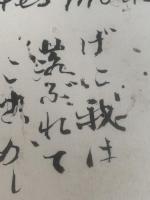 げに我は
落ぶれて
ここかし